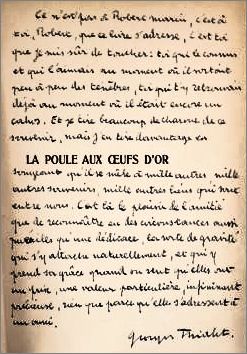 Ce n'est pas à Robert marin, c'est à
toi, Robert, que ce livre s'adresse, c'est toi
que je suis sûr de toucher : toi qui le connus
et qui l'aimas au moment où il sortait
peu à peu des ténèbres, toi qui t'y retrouvais
déjà au moment où il était encore un
cahos. Et je tire beaucoup de charme de ce
souvenir, mais j'en tire davantage en
LA POULE AUX ŒUFS D'OR
songeant qu'il se mêle à mille autres mille
autres souvenirs, mille autres liens qui sont
entre nous. C'est là le plaisir de l'amitié
que de reconnaître en des circonstances aussi
qu'une dédicace, la sorte de gravité
qui s'y attache naturellement, et qui y
prend sa grâce quand on sent qu'elles ont
un prix, une valeur particulière, infiniment
précieuse, rien que parce qu'elle s'adressent à
un ami.
Georges Thialet